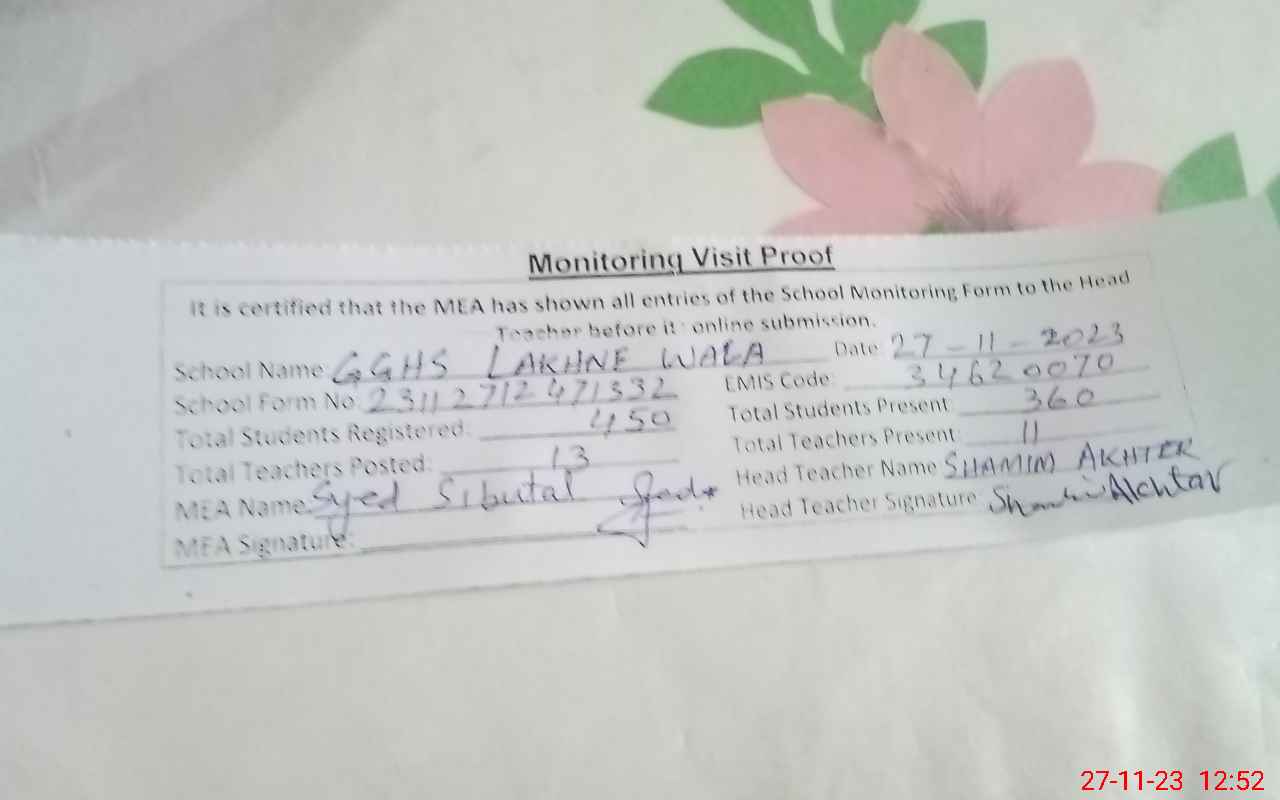 Monitoring Visit Proof
It is certified that the MEA has shown all entries of the School Monitoring Form to the Head
Teacher before it online submission.
School Name: GGHS LAKHNE WALA Date: 27-11-2023
School Form No: 23112712471332 EMIS Code: 34620070
Total Students Registered: 450 Total Students Present: 360
Total Teachers Posted: 13 Total Teachers Present: 11
MEA Name: Syed Sibutal Head Teacher Name SHAMIM AKHTER
MEA Signature: Head Teacher Signature: Shamim Akhtar
27-11-23 12:52